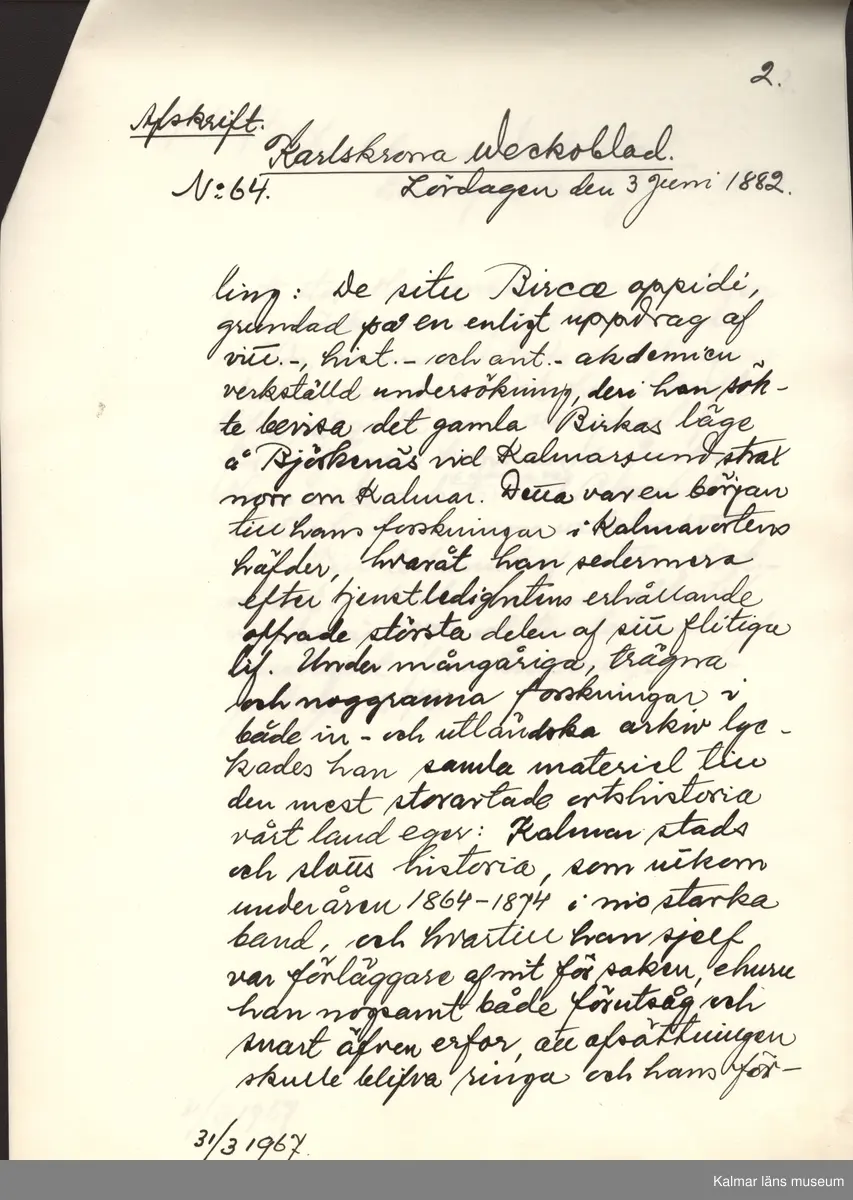 2.
Afskrift.
Karlskrona Weckoblad.
No 64. Lördagen den 3 Juni 1882.
ling: De situ Bircæ oppidi,
grundad på en enligt uppdrag af
vitt.-, hist.- och ant.- akademien
verkställd undersökning, deri han sök-
te bevisa det gamla Birkas läge
å Björkenäs vid Kalmarsund strax
norr om Kalmar. Detta var en början
till hans forskningar i Kalmarortens
häfder, hvaråt han sedermera
efter tjenstledighetens erhållande
offrade största delen af sitt flitiga
lif. Under mångåriga, trägna
och noggranna forskningar i
både in- och utländska arkiv lyc-
kades han samla materiel till
den mest storartade ortshistoria
vårt land eger: Kalmar stads
och slotts historia, som utkom
under åren 1864-1874 i nio starka
band, och hvartill han sjelf
var förläggare af nit för saken, ehuru
han nogsamt både förutsåg och
snart äfven erfor, att afsättningen
skulle blifva ringa och hans för-
31/3 1967.
Kalmar läns museum